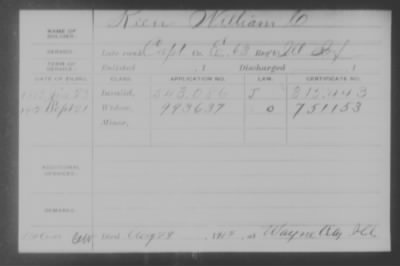 NAME OF SOLDIER: Keen William C
SERVICE: Late rank Capt Co. E, 63 Reg't Ill Inf
TERM OF SERVICE: Enlisted , 1 Discharged , 1
DATE OF FILING. CLASS. APPLICATION NO. LAW. CERTIFICATE NO.
Invalid, 543.086 J
Sept 21 Widow, 993637 O 751153
Minor,
ADDITIONAL SERVICES:
REMARKS:
Died Aug 28 , 191 , at Wayne City Ill